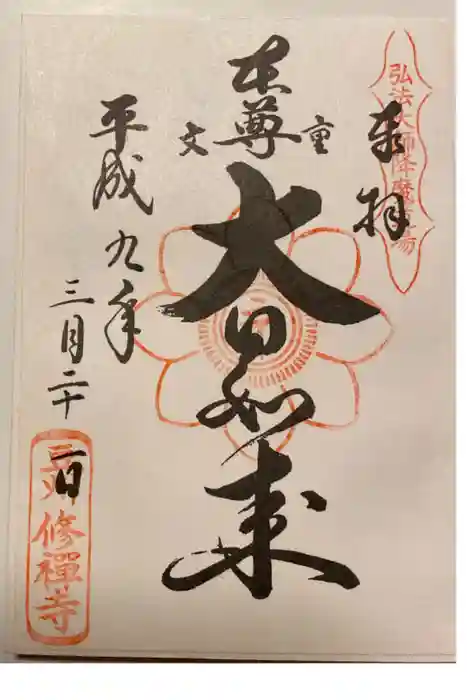 奉拝
弘法大師降魔道場
本尊
重文
大日如来
平成九年
三月二十一日
修禅寺